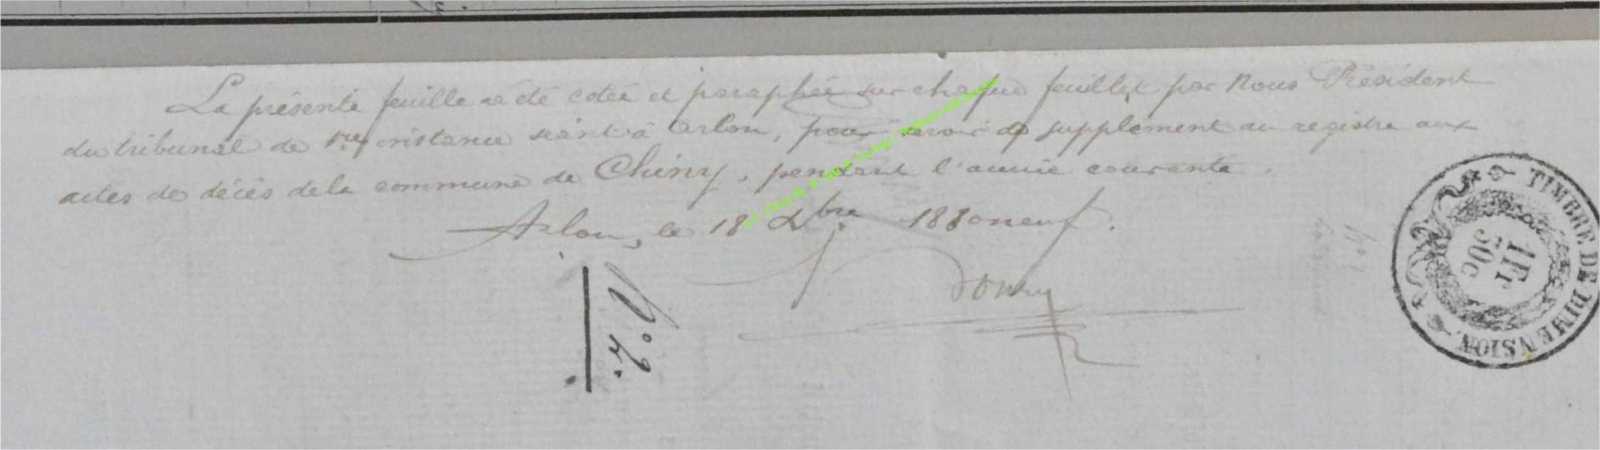 La présente feuille a été cotée et paraphée sur chaque feuillet par Nous Président
du tribunal de 1re instance séant à Arlon, pour servir de supplément au registre aux
actes de décès de la commune de Chiny, pendant l'année courante.
Arlon, le 18 Xbre 1880neuf.
N° 2.
TIMBRE DE DIMENSION.
1Fr
50c